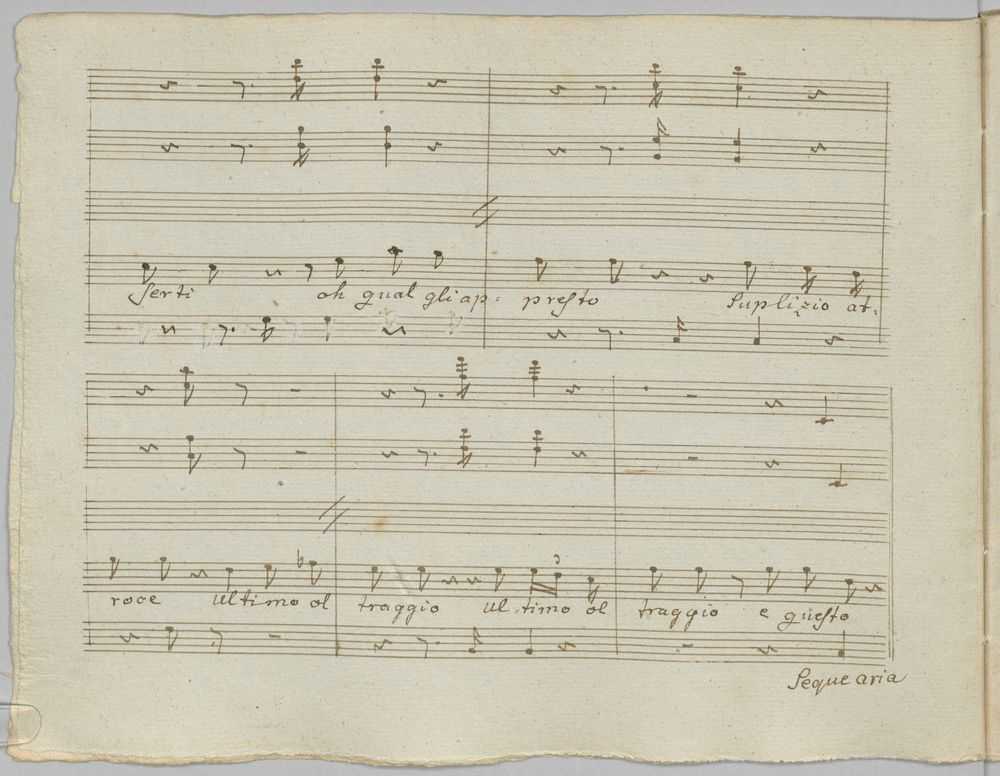 serti oh qual gli ap- presto Suplizio at-
roce ultimo ol traggio ul-timo ol traggio e questo
Seque aria